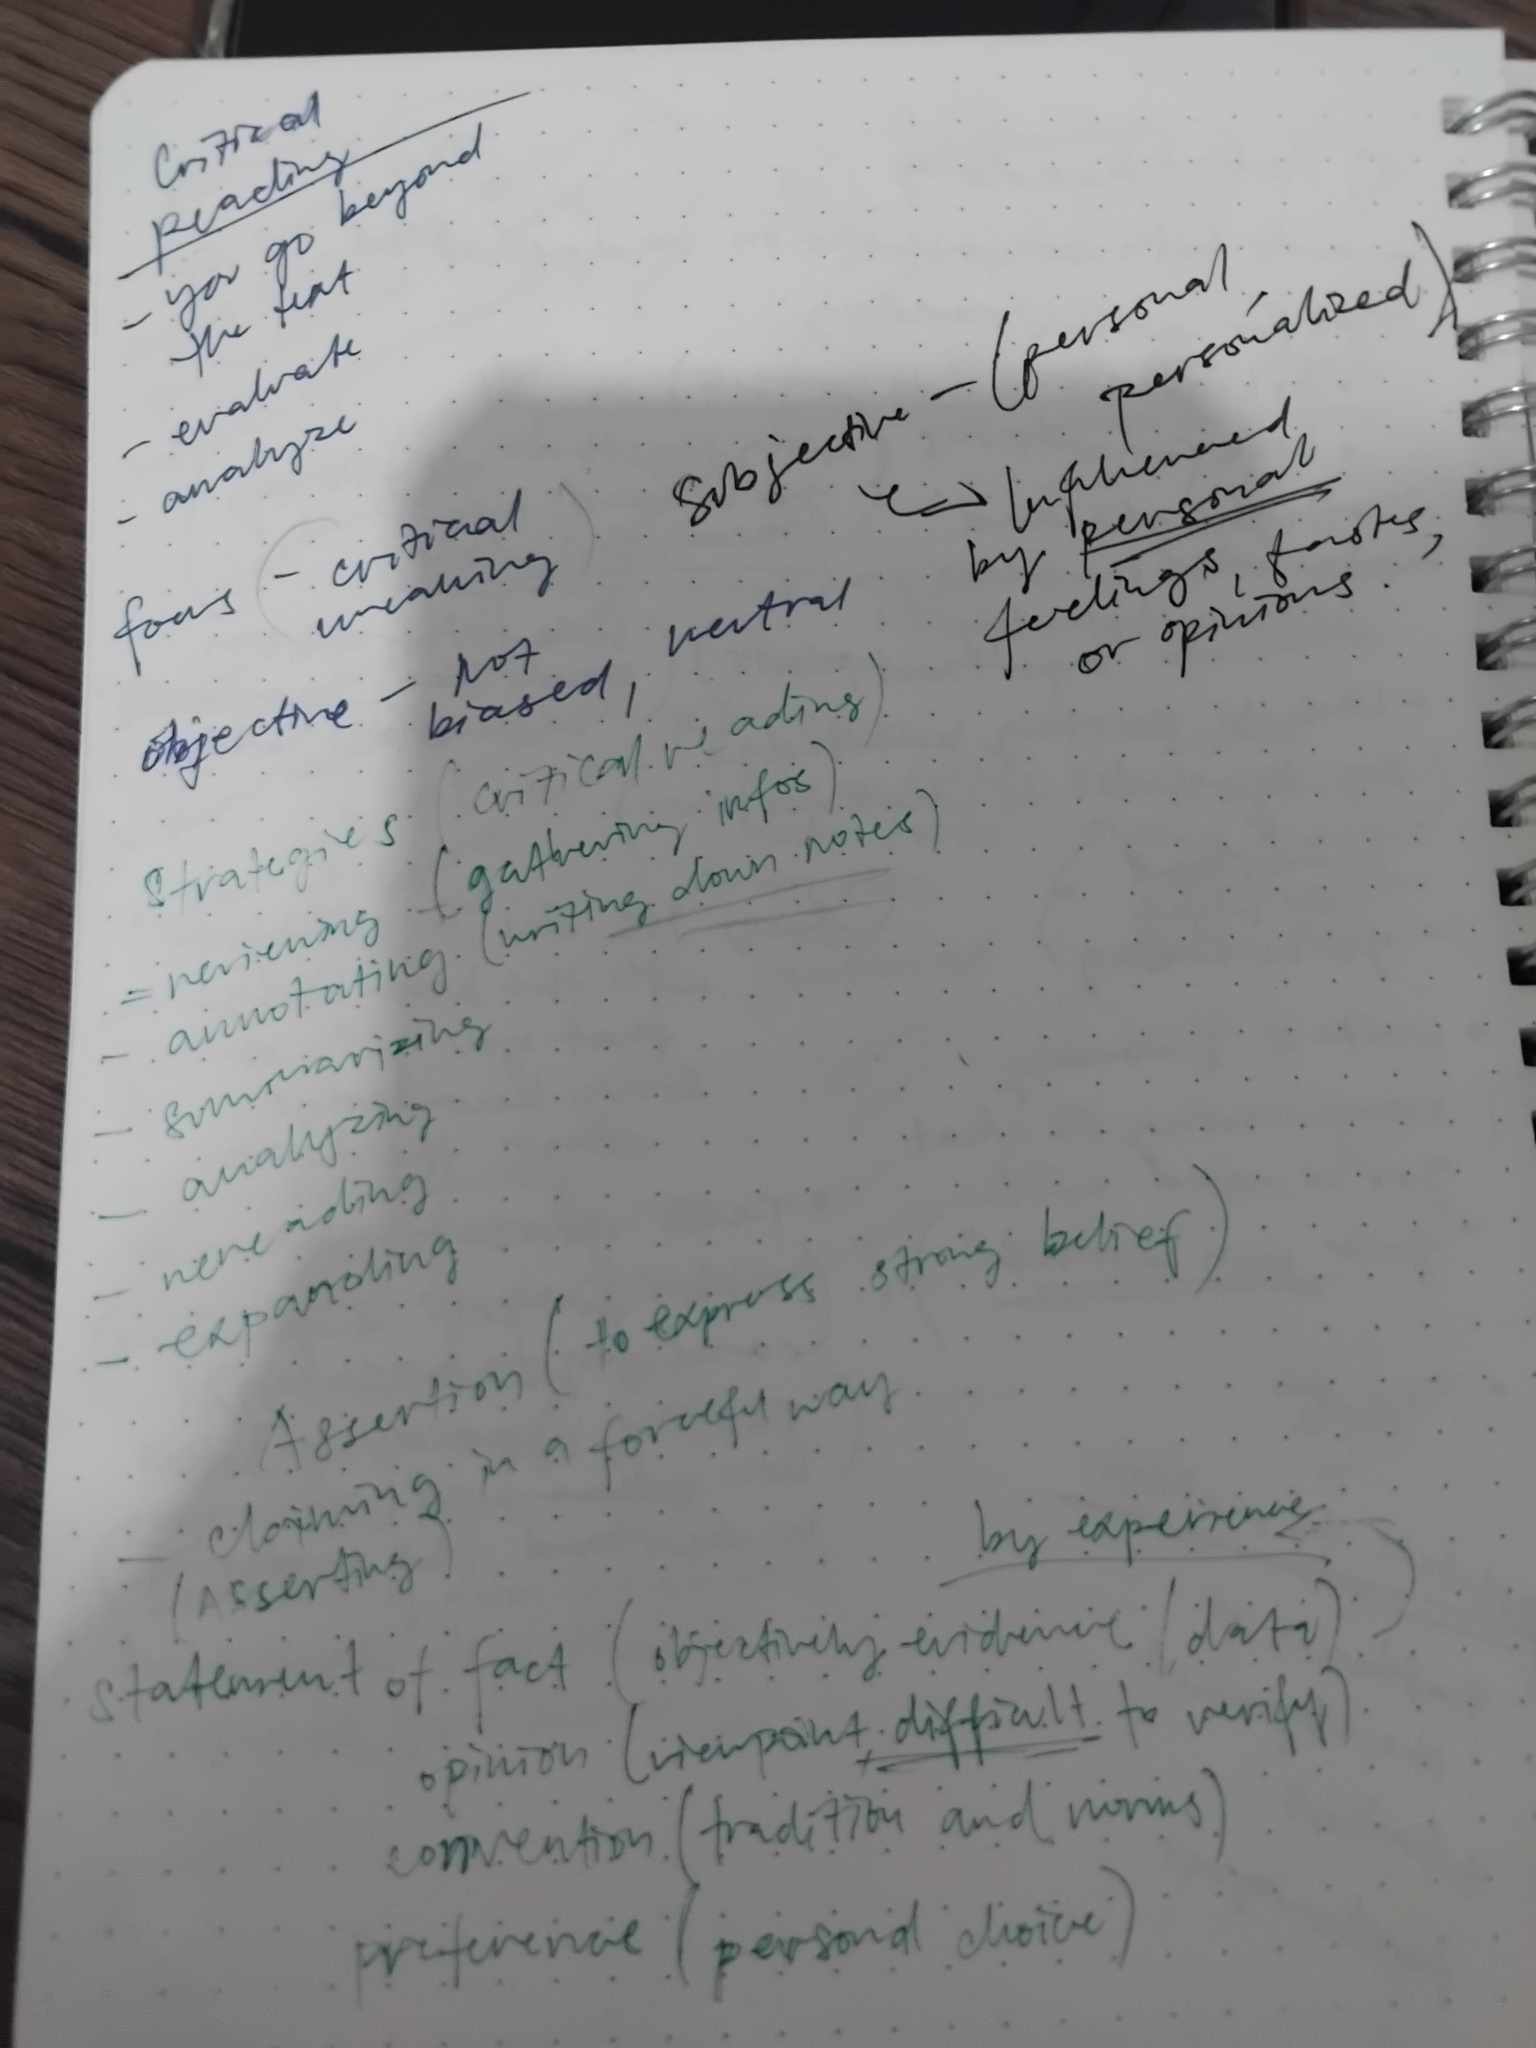 Critical
reading
- you go beyond
the text
- evaluate
- analyze
focus (- critical
meaning)
objective - Not
biased, neutral
Subjective - (personal
personalized)
↳ Influenced
by personal
feelings, tastes,
or opinions.
Strategies (critical reading)
= reviewing - (gathering infos)
- annotating (writing down notes)
- summarizing
- analyzing
- rereading
- expanding
Assertion (to express strong belief)
- claiming in a forceful way
(Asserting)
by experience
Statement of fact (objectively evidence / data)
opinion (viewpoint, difficult to verify)
convention (tradition and norms)
preference (personal choice)